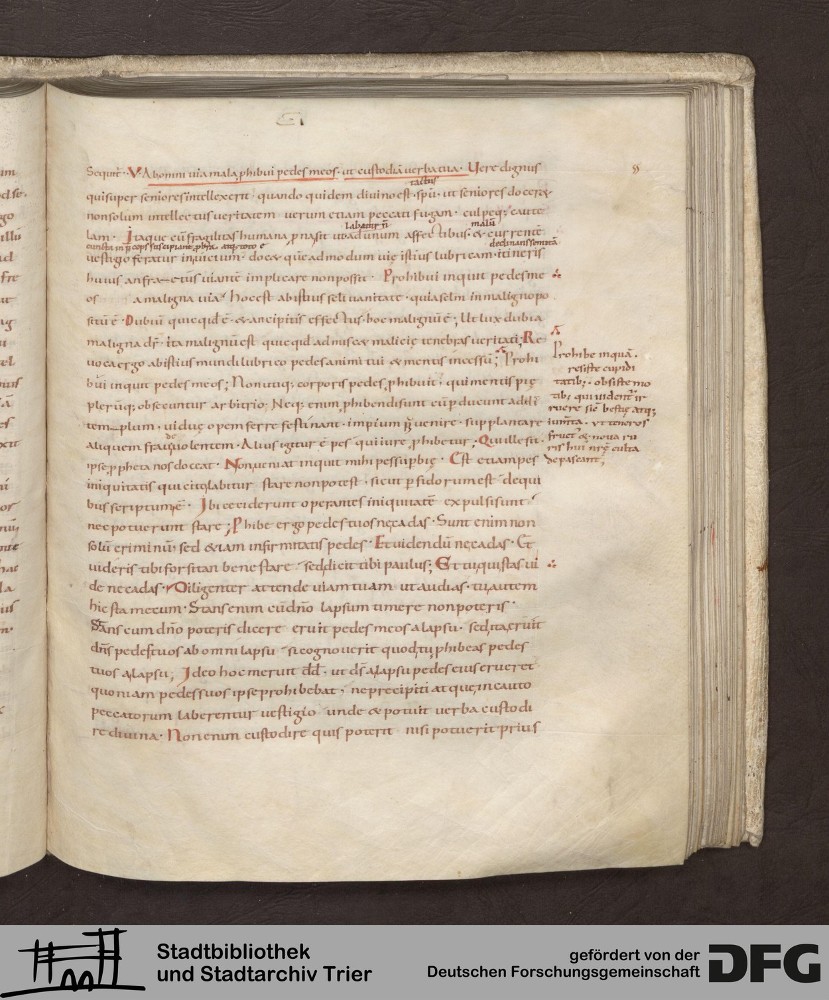 Sequit̅ · V · Ab omni uia mala ꝓhibui pedes meos · ut custodiā uerba tua · Uere dignus
qui super seniores intellexerit · quando quidem diuino est sp̅u · ut seniores docerꝫ
tactus
non solum intellectus ueritatem · uerum etiam peccati fugam · culpeq; caute
labatur n̅
malū
lam · Itaque cū fragilitas humana affectibus · & currente
declinatis omitā
uestigo feratur inuictum · doc& quē admodum uię istius lubricam itineris
huius anfractus uiantē implicare non possit · Prohibui inquit pedes me
os a maligna uia · hoc est ab istius sęli uanitate · quia sęlm in maligno po
situ̅ ē · Dubiū quicquid ē · & ancipitis effectus · hoc malignū ē ; Ut lux dubia
maligna dr̅ · ita malignū est quicquid admiscet malicię tenebras ueritati ; Re
uoca ergo ab istius mundi lubrico pedes animi tui & mentis incessū ; Prohi
bui inquit pedes meos ; Non utiq; corporis pedes ꝓhibuit · qui mentis pię
pler ūq; obsecuntur arbitrio ; Neq; enim ꝓhibendi sunt cū ꝓducunt ad
templum · uiduę opem ferre festinant · impium ꝑuenire · supplantare
de
aliquem fraudulentem · Alius igitur ē pes qui iure ꝓhibetur ; Quis ille sit ·
ipse ꝓpheta nos doceat · Non ueniat inquit mihi pes supbię · Est etiam pes
iniquitatis qui cito labitur stare non potest · sicut ꝑfidorum est de qui
bus scriptum ē · Ibi ceciderunt operantes iniquitatē expulsi sunt
nec potuerunt stare ; Phibe ergo pedes tuos ne cadas · Sunt enim non
solū criminū · sed & iam infirmitatis pedes · Et uidendū ne cadas · Et
uideris tibi forsitan bene stare · sed dicit tibi paulus ; Et tu qui stas ui
de ne cadas · Diligenter attende uiam tuam ut audias · tu autem
hic sta mecum · Stans enim cū dn̅o lapsum timere non poteris ·
Stans cum dn̅o poteris dicere eruit pedes meos a lapsu · sed ita eruit
dn̅s pedes tuos ab omni lapsu si cognouerit quod tu ꝓhibeas pedes
tuos a lapsu ; Ideo hoc meruit dd̅ · ut ds̅ a lapsu pedes eius erueret
quoniam pedes suos ipse prohibebat · ne precipiti atque incauto
peccatorum laberentur uestigio unde & potuit uerba custodi
re diuina · Non enim custodire quis poterit nisi potuerit prius
Prohibe inquā ·
resiste cupidi
tatib; · obsiste mo
tib; qui uident̅ ir
ruere sic̅ bestię atq;
iumta · ut teneros
fruct & noua ru
ris hui nr̅ę culta
depascant
Stadtbibliothek
und Stadtarchiv Trier
gefördert von der
Deutschen Forschungsgemeinschaft
DFG